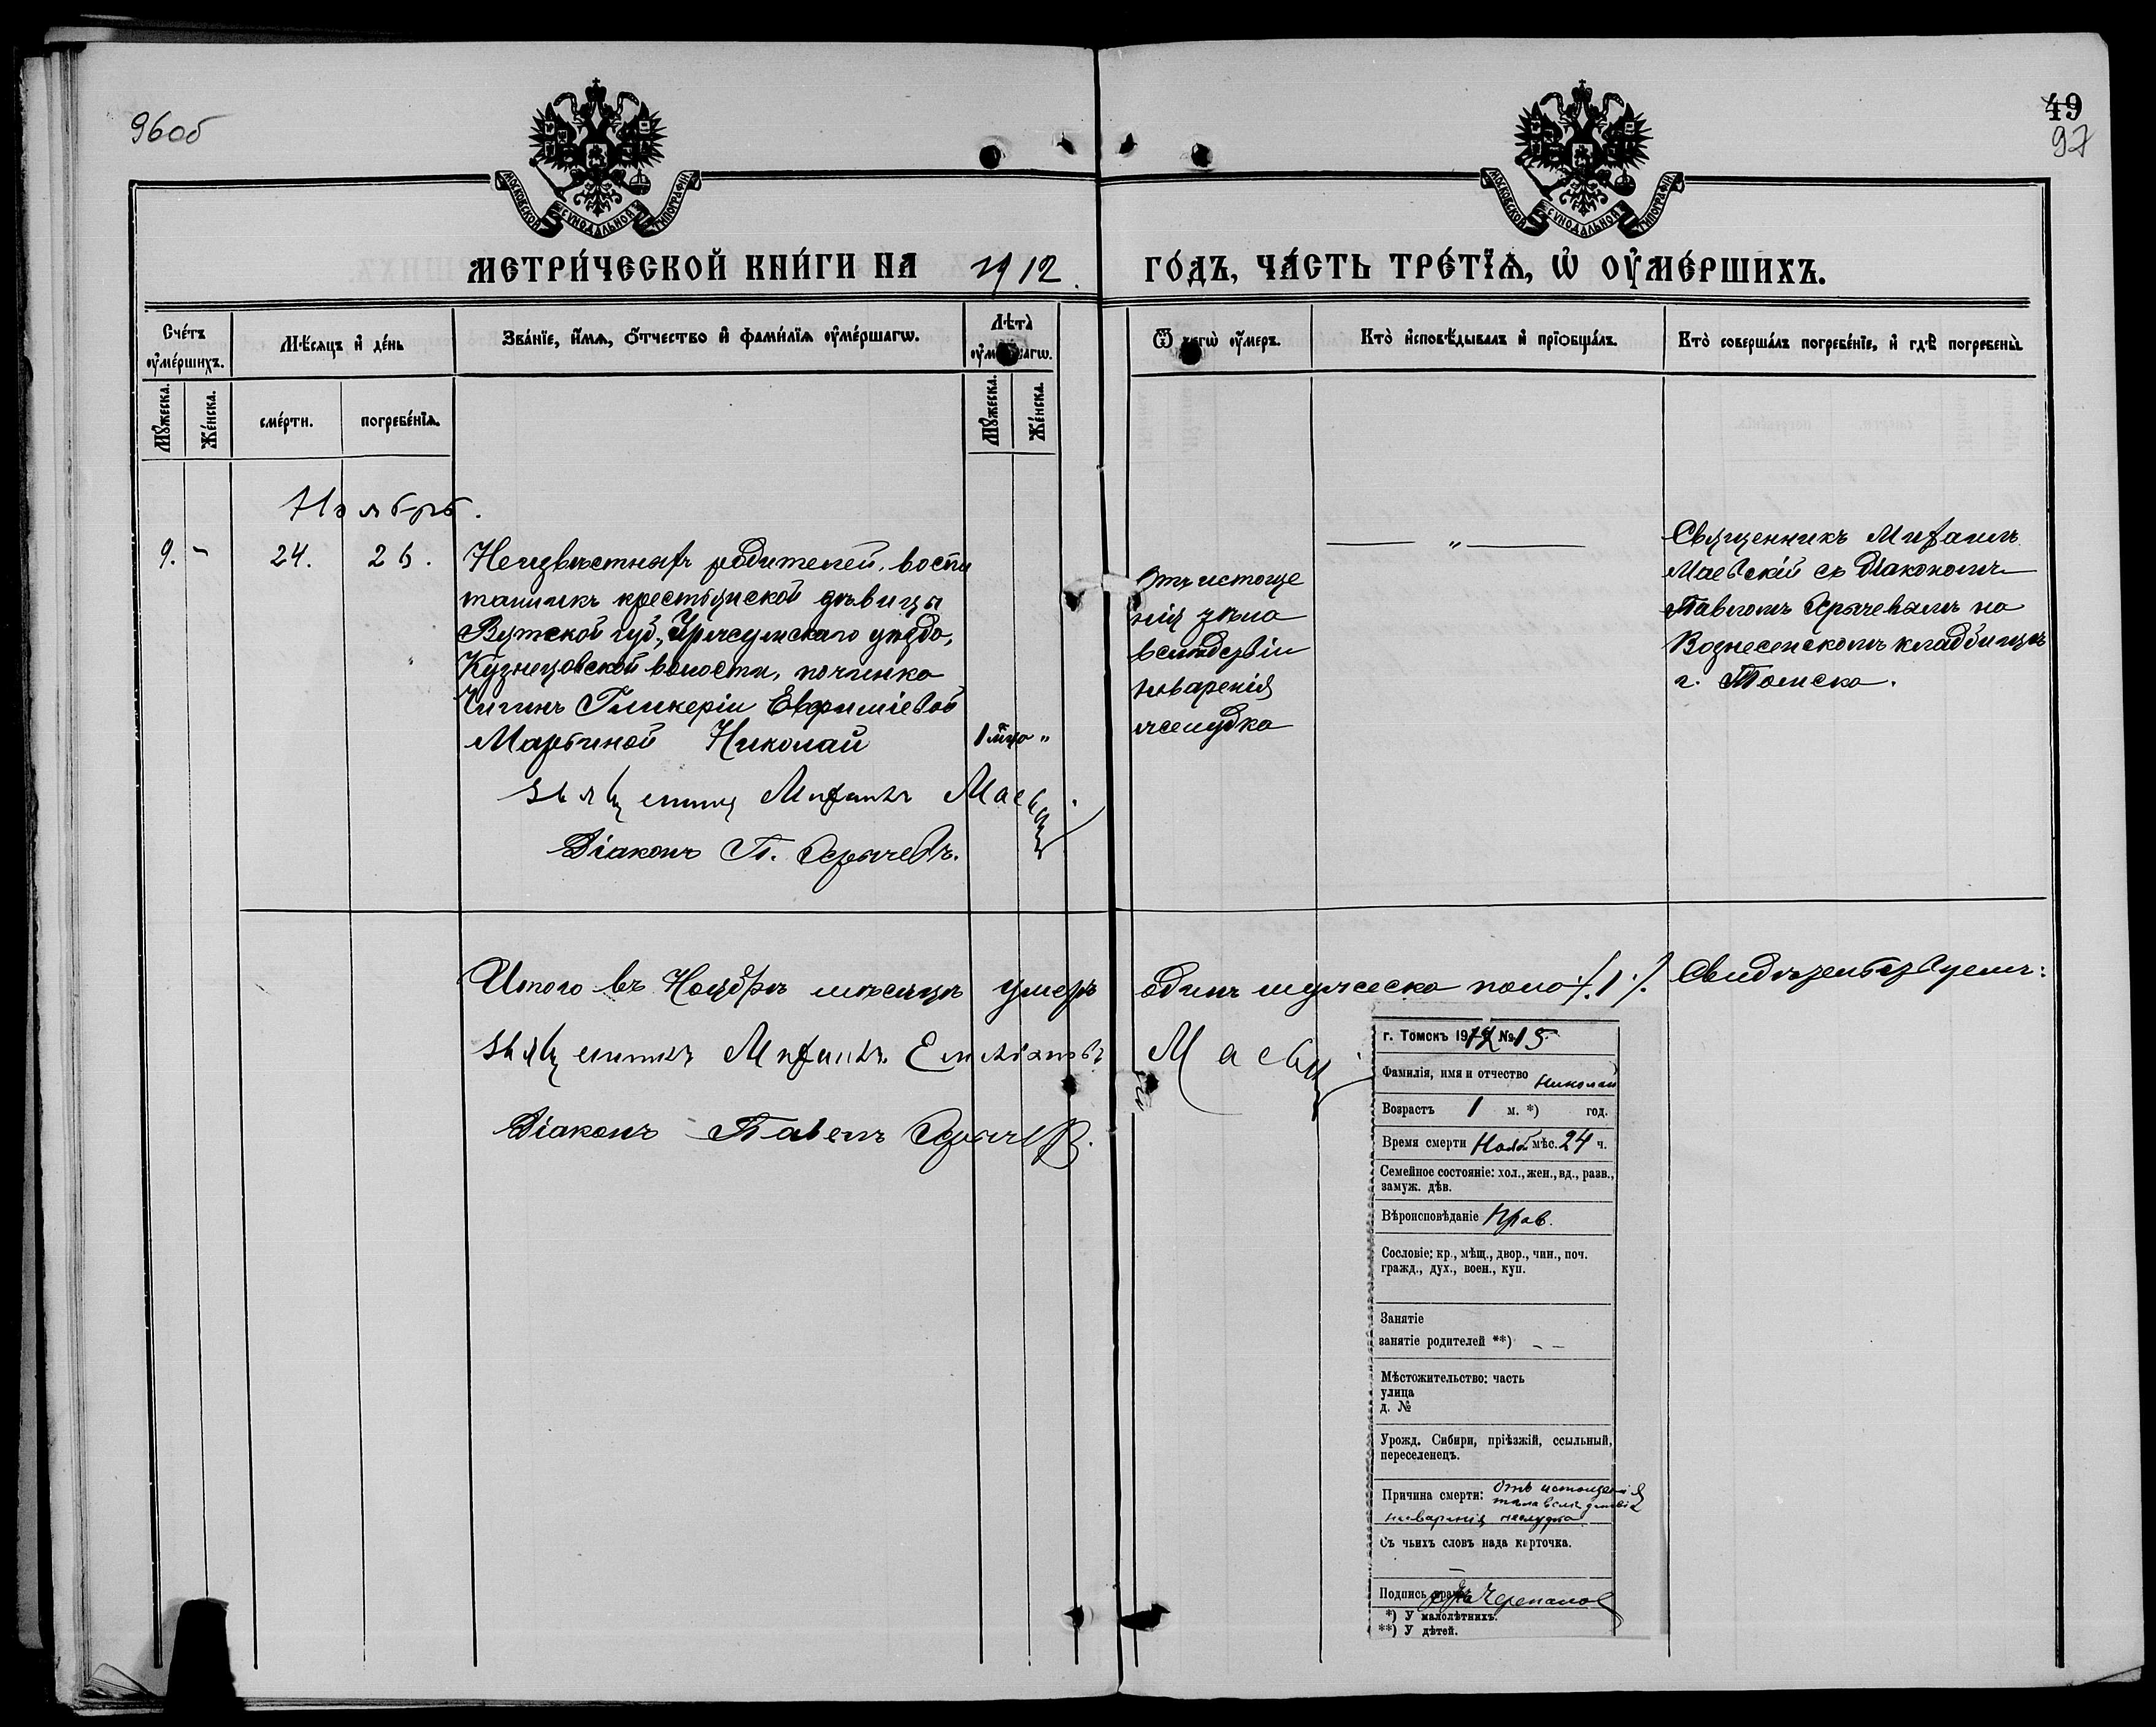 96об
49
97
МОСКОВСКОЙ СѴНОДАЛЬНОЙ ТИПОГРАФІИ
МОСКОВСКОЙ СѴНОДАЛЬНОЙ ТИПОГРАФІИ
МЕТРИ́ЧЕСКОЙ КНИ́ГИ НА 1912. ГО́ДЪ, ЧА́СТЬ ТРЕ́ТЇѦ, Ѡ҆ ОУ҆МЕ́РШИХЪ.
Сче́тъ оу҆ме́ршихъ.
Мѣ́сяцъ и҆ де́нь
Зва́нїе, и҆́мѧ, ѻ҆́тчество и҆ фами́лїѧ оу҆ме́ршагѡ.
Лѣта̀ оу҆ме́ршагѡ.
Ѿ чегѡ̀ оу҆́меръ.
Кто̀ и҆сповѣ́дывалъ и҆ прїѡбща́лъ.
Кто̀ соверша́лъ погребе́нїе, и҆ гдѣ̀ погребены̀.
Мꙋ́жеска.
Же́нска.
сме́рти.
погребе́нїѧ.
Мꙋ́жеска.
Же́нска.
Ноябрь.
9. - 24. 26.
Неизвѣстныхъ родителей, воспи
танникъ крестьянской дѣвицы
Вятской губ., Уржумскаго уѣзда,
Кузнецовской волости, починка
Чигинъ Гликеріи Евфиміевой
Марьиной Николай 1 мца „
Отъ истоще
нія тѣла
вслѣдствіи
неваренія
желудка
— „ —
Священникъ Михаилъ
Маевскій съ діакономъ
Павломъ Хрычевымъ на
Вознесенскомъ кладбищѣ
г. Томска.
Священникъ Михаилъ Маевскій
Діаконъ П. Хрычевъ.
Итого въ Ноябрѣ мѣсяцѣ умеръ одинъ мужеска пола /.1./. Свидѣтельствуемъ:
Священникъ Михаилъ Емиліановъ Маевскій
Діаконъ Павелъ Хрычевъ.
г. Томскъ 1912 № 15.
Фамилія, имя и отчество Николай
Возрастъ 1 м. *) год.
Время смерти Нояб мѣс. 24 ч.
Семейное состояніе: хол., жен., вд., разв.,
замуж. дѣв.
Вѣроисповѣданіе Прав.
Сословіе: кр., мѣщ., двор., чин., поч.
гражд., дух., воен., куп.
Занятіе
занятіе родителей **) – –
Мѣстожительство: часть
улица
д. №
Урожд. Сибири, пріѣзжій, ссыльный,
переселенецъ.
Причина смерти: Отъ истощенія
тѣла вслѣдствіи
неваренія желудка
Съ чьихъ словъ дана карточка.
–
Подпись врача Черепанов
*) У малолѣтнихъ.
**) У дѣтей.